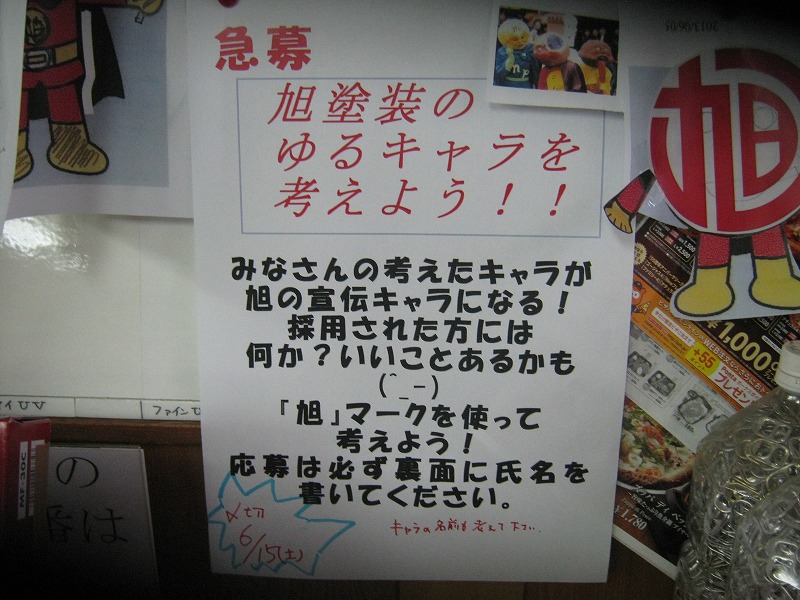 急募
旭塗装の
ゆるキャラを
考えよう！！
みなさんの考えたキャラが
旭の宣伝キャラになる！
採用された方には
何か？いいことあるかも
(^_-)
「旭」マークを使って
考えよう！
応募は必ず裏面に氏名を
書いてください。
〆切
6/15(土)
キャラの名前も考えて下さい。
2013/06/05
旭
¥1,000
+55
プレゼント
¥1,780
ファインU
MF-30C
の
番は